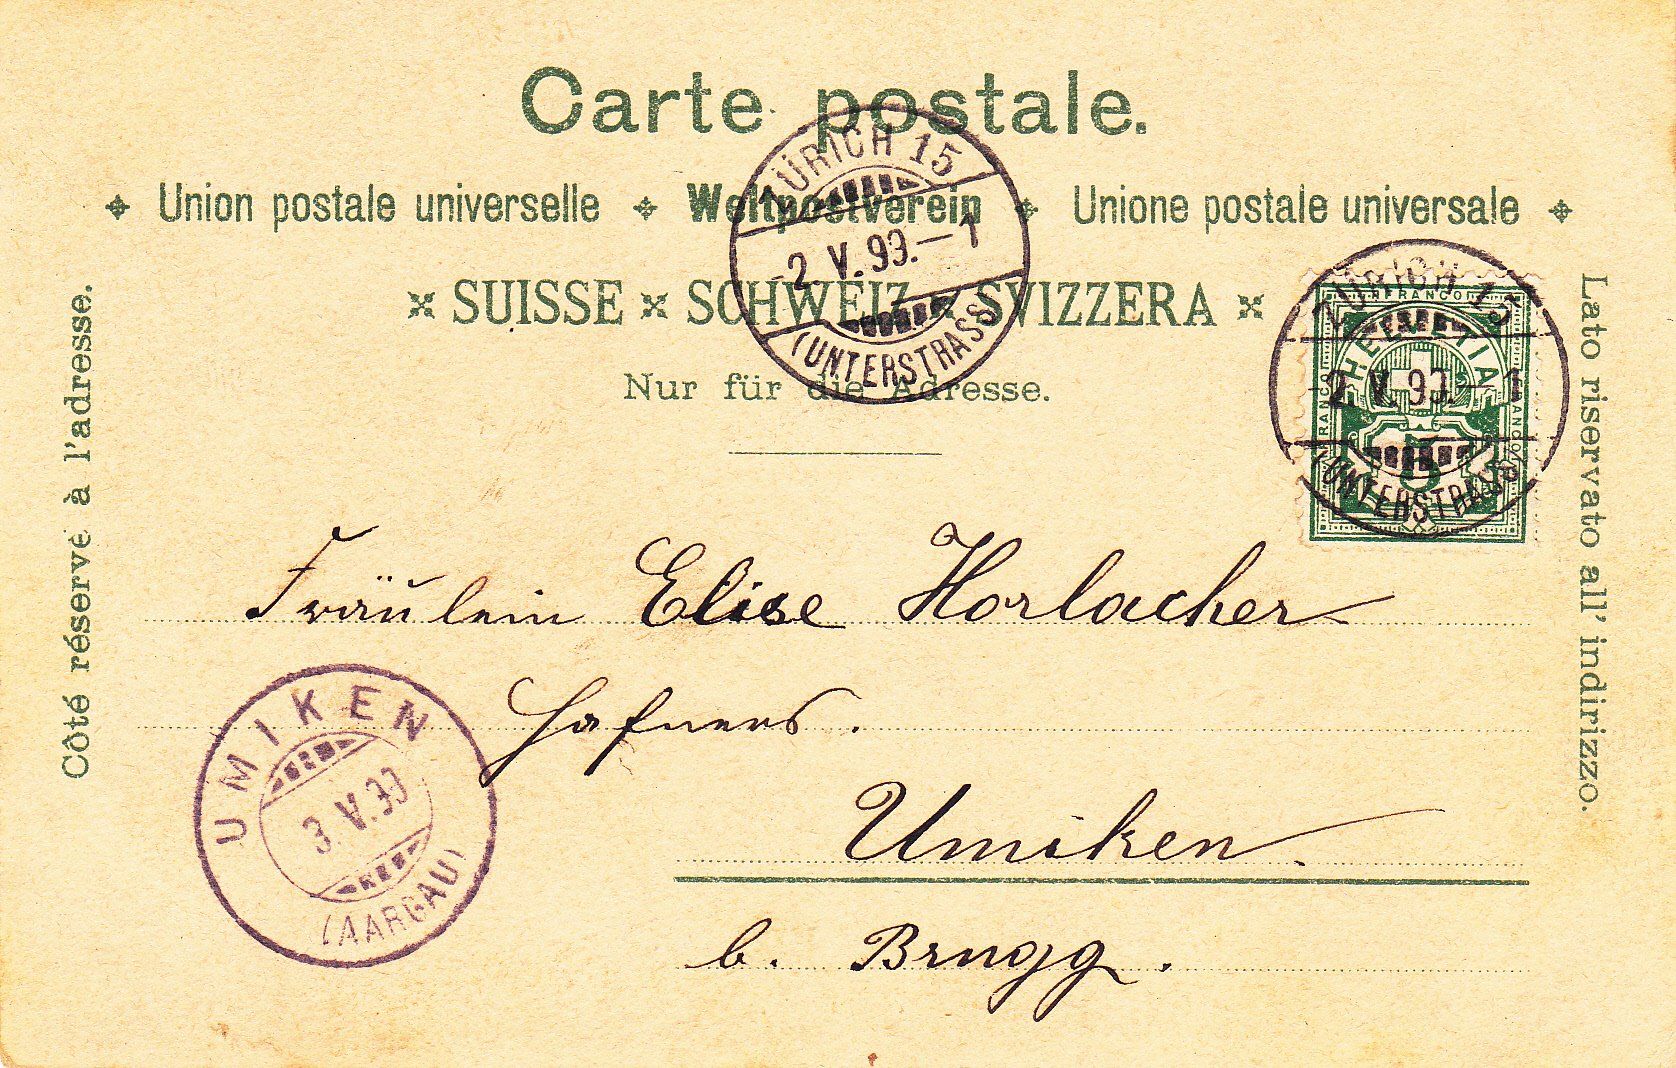 Carte postale.
Union postale universelle Weltpostverein Unione postale universale
SUISSE SCHWEIZ SVIZZERA
Nur für die Adresse.
Côté réservé à l'adresse.
Lato riservato all' indirizzo.
ZÜRICH 15
2. V. 99.—1
(UNTERSTRASS)
ZÜRICH 15
2. V. 99.—1
(UNTERSTRASS)
FRANCO
HELVETIA
5
Fräulein Elise Horlacher
Hafners.
Umiken.
b. Brugg.
UMIKEN
3. V. 99
(AARGAU)